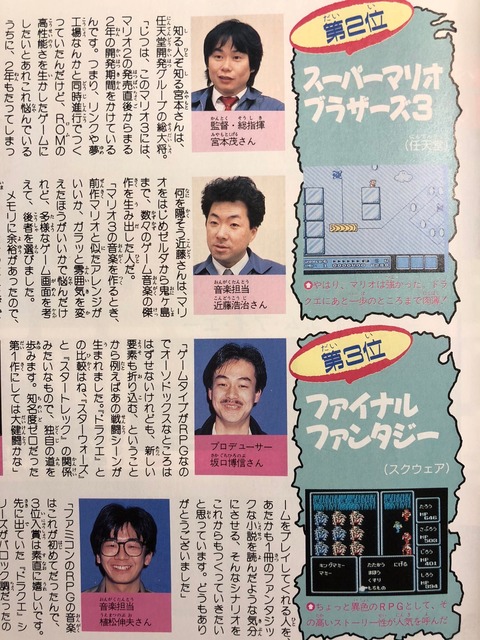 第2位
スーパーマリオ
ブラザーズ3
(任天堂)
●やはり、マリオは強かった。ドラ
クエにあと一歩のところまで肉薄!
監督・総指揮
宮本茂さん
知る人ぞ知る宮本さんは、
任天堂開発グループの総大将。
「じつは、このマリオ3には、
マリオ2の発売直後からまる
2年の開発期間をかけている
んです。つまり、パンツや夢
工場なんかと同時進行でつく
っていたんだけど、ROMの
高性能さを生かしたゲームに
したいとあれこれ悩んでいる
うちに、2年もたってしまっ
音楽担当
近藤浩治さん
何を隠そう近藤さんは、マリ
オをはじめゼルダから鬼ヶ島
まで、数々のゲーム音楽の傑
作を生み出した人だ。
「マリオ3の音楽を作るとき、
前作マリオと似たアレンジが
いいか、ガラッと雰囲気を変
えたほうがいいかで悩んだけ
れど、多様なゲーム画面を考
え、後者を選びました。
メモリに余裕があったので、
第3位
ファイナル
ファンタジー
(スクウェア)
●ちょっと異色のRPGとして、そ
の高いストーリー性が人気を呼んだ
プロデューサー
坂口博信さん
「ゲームタイプがRPGなの
でオーソドックスなところは
はずせないけれども、新しい
要素も折り込む、ということ
から例えばあの戦闘シーンが
生まれました。『ドラクエ』と
の比較はね、『スターウォーズ』
と『スタートレック』の関係
みたいなもので、独自の道を
歩みます。知名度ゼロだった
第1作にしては大健闘かな」
音楽担当
植松伸夫さん
ームをプレイしてくれる人を、
あたかも1冊のファンタジッ
クな小説を読んだような気分
にさせる、そんなシナリオを
これからもつくっていきたい
と思っています。どうもあり
がとうございました」
「ファミコンのRPGの音楽
はこれが初めてだったんで、
3位入賞は素直に嬉しいです。
先に出ていた『ドラクエ』シ
リーズがバロック調だったの